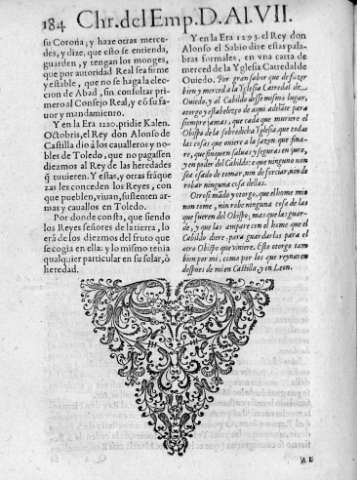 184 Chr. del Emp. D. Al. VII.
su Corona, y haze otras merce-
des, y dize, que esto se entienda,
guarden, y tengan los monges,
que por autoridad Real sea firme
y estable, que no se haga la elec-
cion de Abad, sin consultar pri-
mero al Consejo Real, y cõ su fa-
uor y mandamiento.
Y en la Era 1220. pridie Kalen.
Octobris, el Rey don Alonso de
Castilla dio à los caualleros y no-
bles de Toledo, que no pagassen
diezmos al Rey de las heredades
q̃ tuuieren. Y estas, y otras frãque
zas les conceden los Reyes, con
que pueblen, viuan, sustenten ar-
mas y cauallos en Toledo.
Por donde consta, que siendo
los Reyes señores de la tierra, lo
erã de los diezmos del fruto que
se cogia en ella: y lo mismo tenia
qualquier particular en su solar, ò
heredad.
Y en la Era 1293. el Rey don
Alonso el Sabio dize estas pala-
bras formales, en vna carta de
merced de la Yglesia Catredal de
Ouiedo. Por gran sabor que de fazer
bien y merced a la Yglesia Catredal de
Ouiedo, y al Cabildo desse mismo lugar,
otorgo y establezco de aqui adelãte para
siempre jamas, que cada que muriere el
Obispo de la sobredicha Yglesia, que todas
las cosas que ouiere a la sazon que fina-
re, que finquen saluas y seguras en juro,
y en poder del Cabildo: e que ninguno non
sea osado de tomar, nin de forciar, nin de
robar ninguna cosa dellas.
Otrosi mãdo y otorgo, que el home mio
non tome, nin robe ninguna cosa de las
que fueren del Obispo, mas que las guar-
de, y que las ampare con el home que el
Cabildo diere, para guardarlas para el
otro Obispo que viniere. Esto otorgo tam
bien por mi, como por los que reynaren
despues de mi en Castilla, y en Leon.